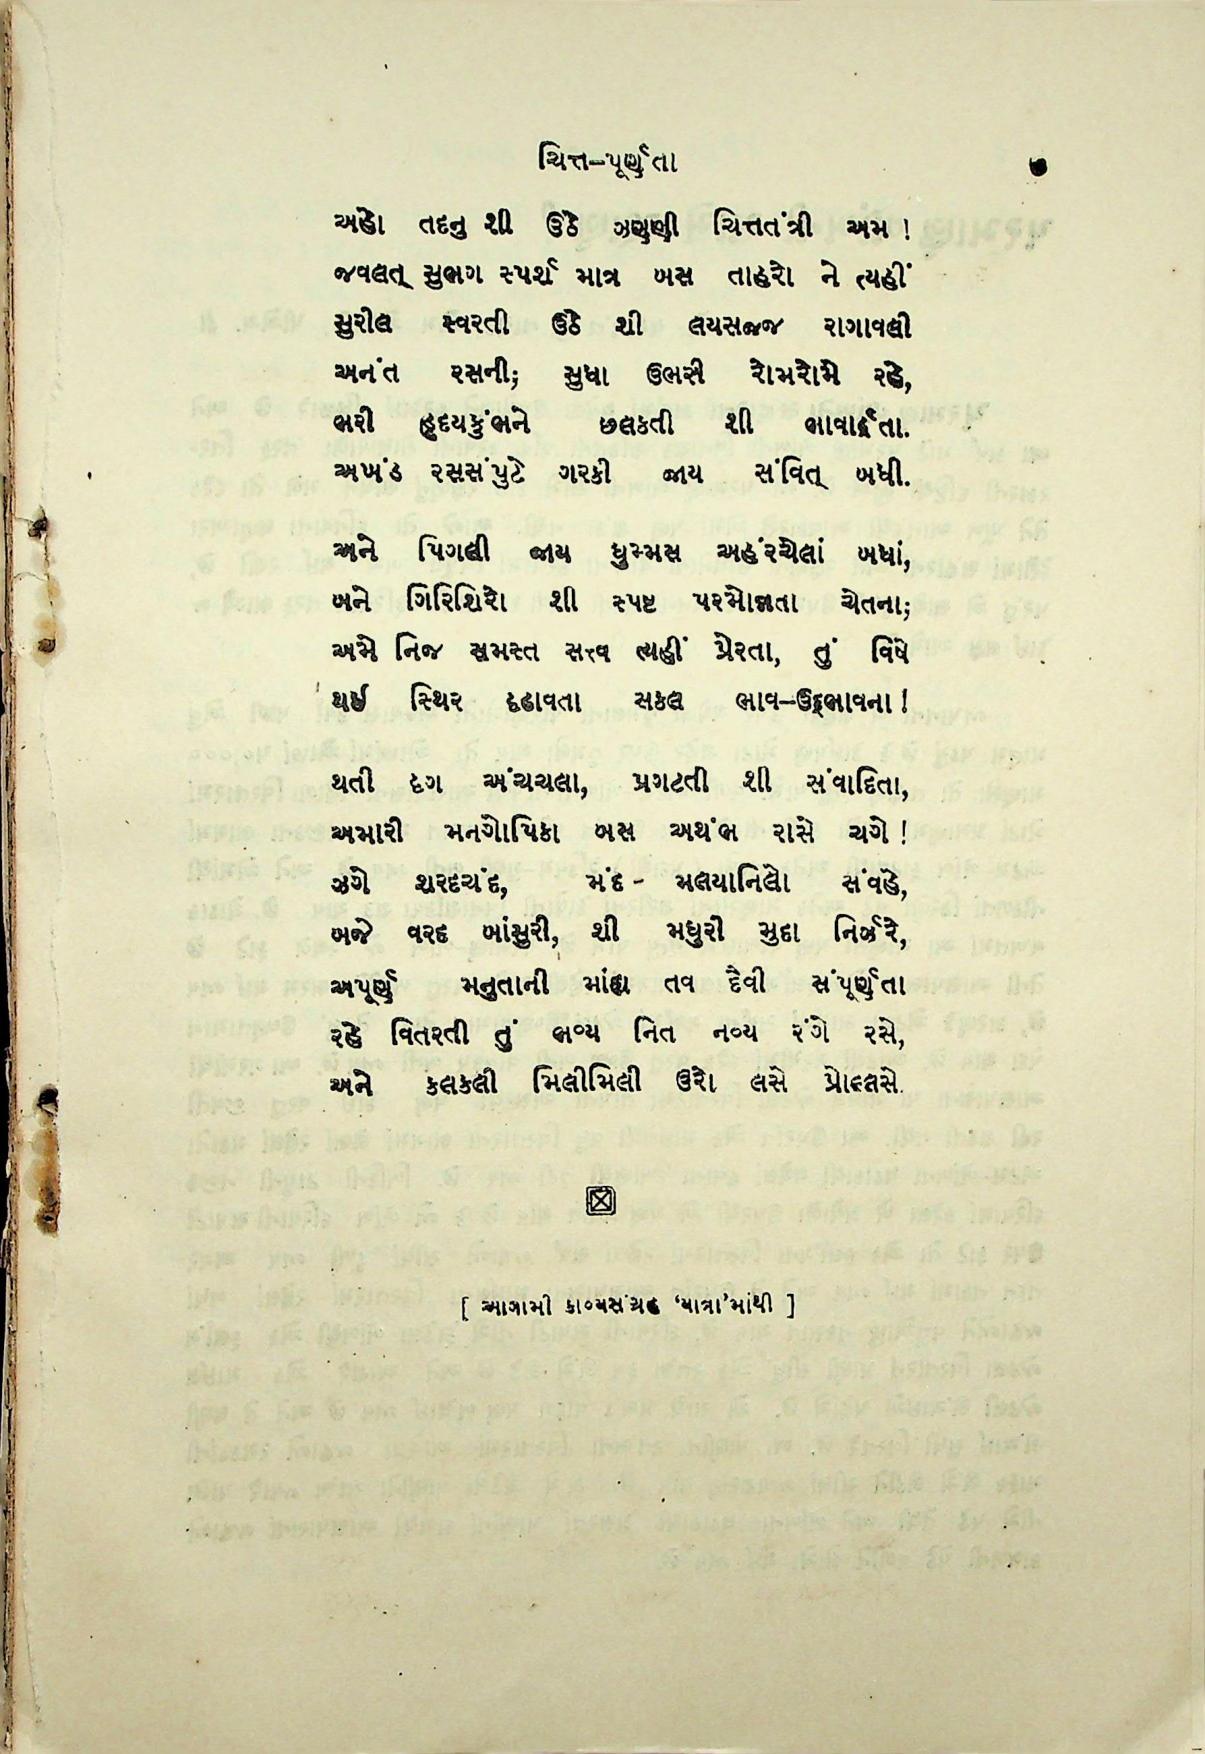 ચિત્ત–પૂર્ણતા
૭
અહો તદનુ શી ઉઠે ઝણણી ચિત્તતંત્રી અમ !
જ્વલત્ સુભગ સ્પર્શ માત્ર બસ તાહરો ને ત્યહીં
સુરીલ સ્વરતી ઉઠે શી લયસજ્જ રાગાવલી
અનંત રસની; સુધા ઉભરી રોમરોમે રહે,
ભરી હૃદયકુંભને છલકતી શી ભાવાર્દ્રતા.
અખંડ રસસંપુટે ગરકી જાય સંવિત્ બધી.
અને પિગલી જાય ધુમ્મસ અહંરચેલાં બધાં,
બને ગિરિશિરો શી સ્પષ્ટ પરમોન્નતા ચેતના;
અમે નિજ સમસ્ત સત્ત્વ ત્યહીં પ્રેરતા, તું વિષે
થઈ સ્થિર દૃઢાવતા સકલ ભાવ–ઉદ્ભાવના !
થતી દૃગ અચંચલા, પ્રગટતી શી સંવાદિતા,
અમારી મનગોપિકા બસ અથંભ રાસે ચગે !
ઝગે શરદચંદ, મંદ - મલયાનિલો સંવહે,
બજે વરદ બાંસુરી, શી મધુરી મુદા નિર્ઝરે,
અપૂર્ણ મનુતાની માંહ્ય તવ દૈવી સંપૂર્ણતા
રહે વિતરતી તું ભવ્ય નિત નવ્ય રંગે રસે,
અને કલકલી મિલીમિલી ઉરો લસે પ્રોલ્લસે.
[ આગામી કાવ્યસંગ્રહ ‘યાત્રા’માંથી ]